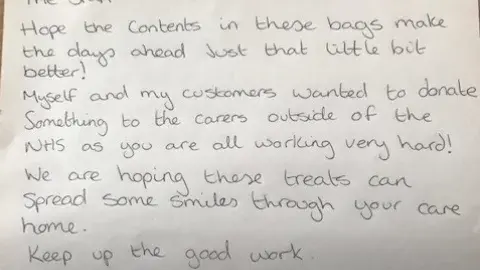 Hope the Contents in these bags make
the days ahead Just that little bit
better!
Myself and my customers wanted to donate
Something to the carers outside of the
NHS as you are all working very hard!
We are hoping these treats can
Spread some smiles through your care
home.
Keep up the good work.